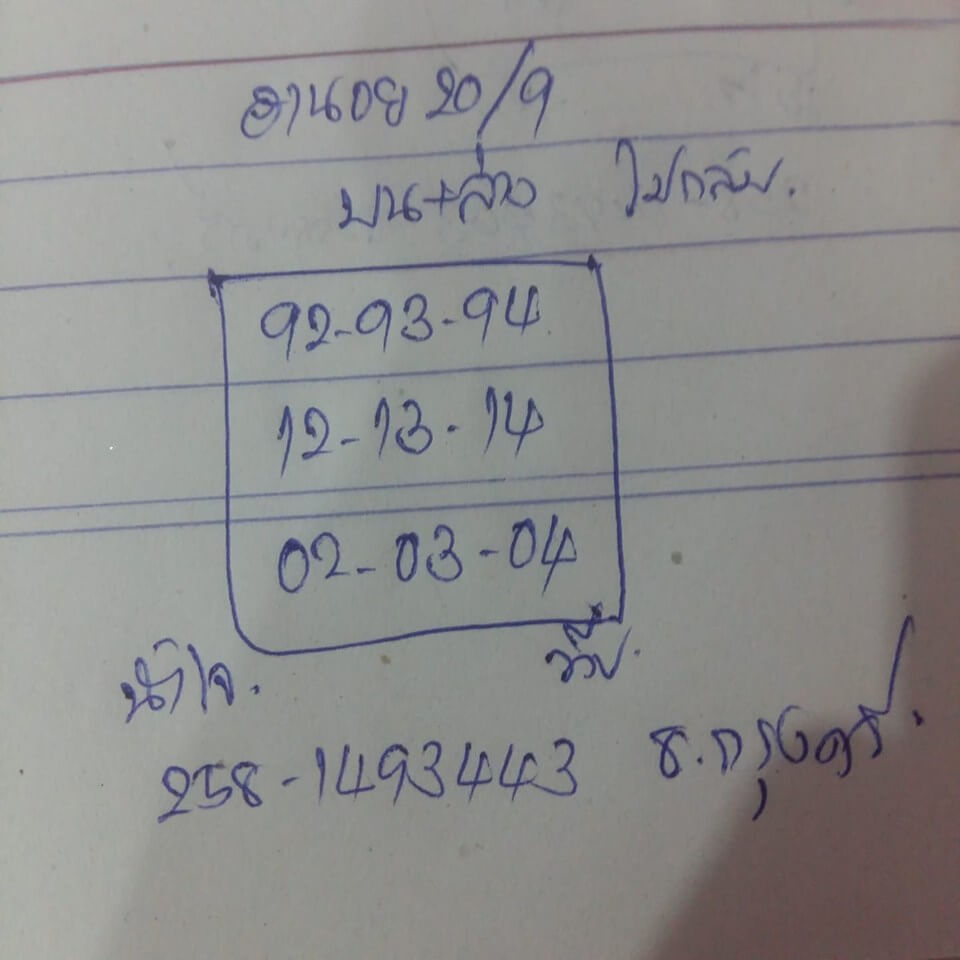 ฮานอย 20/9
บน+ล่าง ไม่กลับ.
92-93-94
12-13-14
02-03-04
น้ำใจ.
258-1493443 ธ.กรุงศรี.